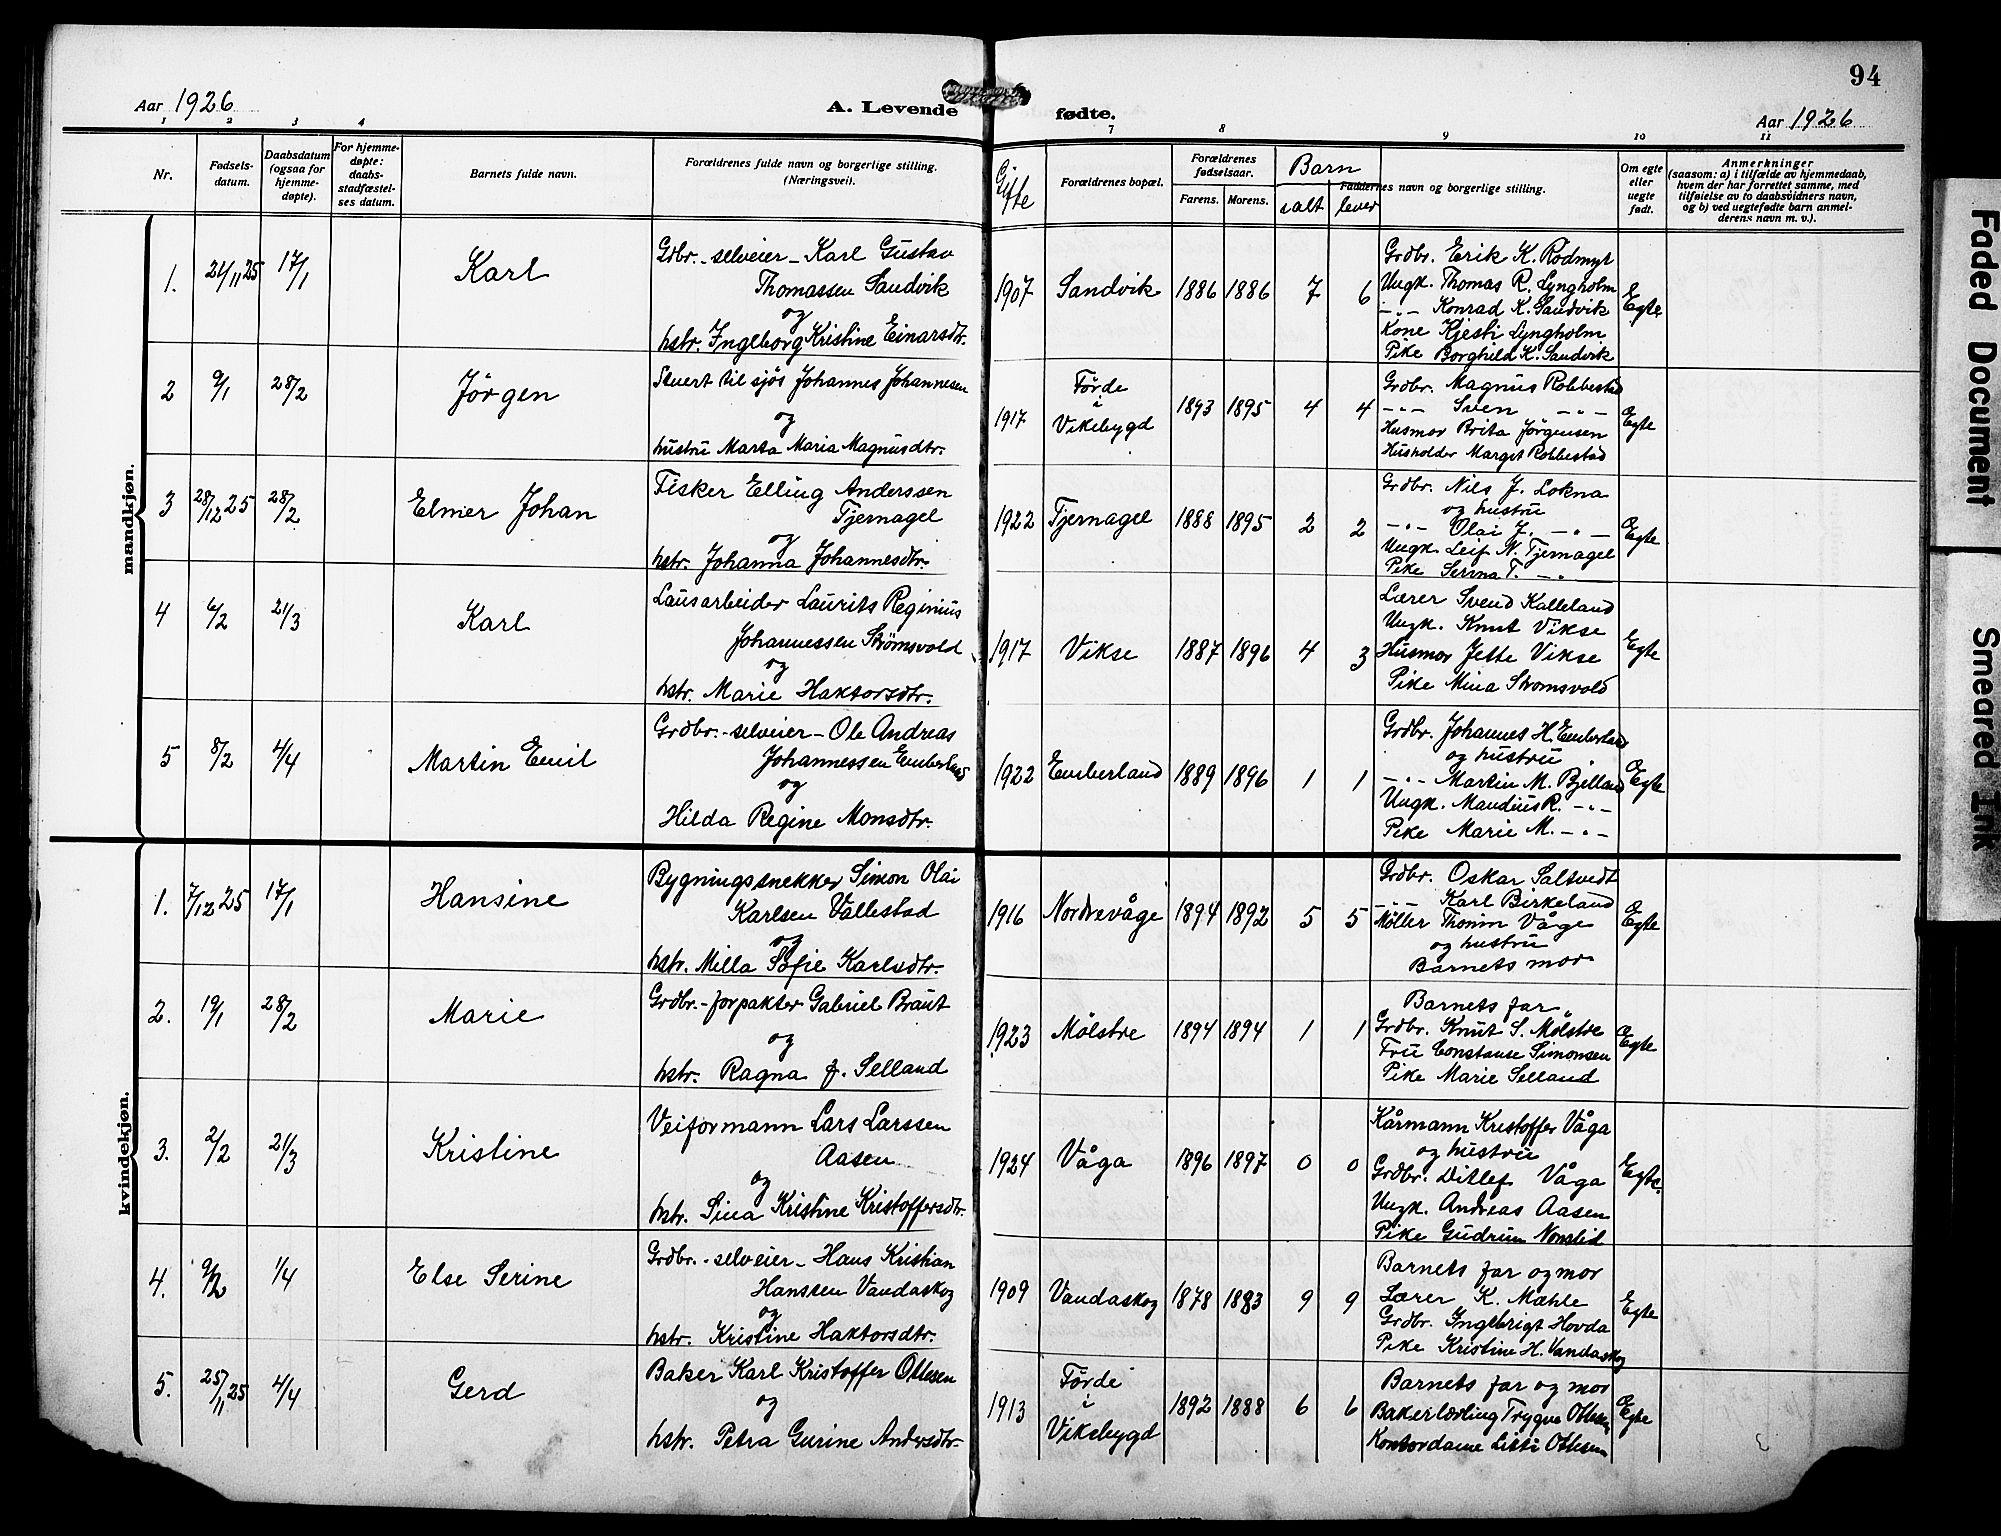 94
Aar 1926
A. Levende fødte.
Aar 1926
1 2 3 4 7 8 9 10 11
Nr.
Fødsels-
datum.
Daabsdatum
(ogsaa for
hjemme-
døpte).
For hjemme-
døpte:
daabs-
stadfæstel-
ses datum.
Barnets fulde navn.
Forældrenes fulde navn og borgerlige stilling.
(Næringsvei).
Gifte
Forældrenes bopæl.
Forældrenes
fødselsaar.
Farens. Morens.
Barn
i alt lever
Faddernes navn og borgerlige stilling.
Om egte
eller
uegte
født.
Anmerkninger
(saasom: a) i tilfælde av hjemmedaab,
hvem der har forrettet samme, med
tilføielse av to daabsvidners navn,
og b) ved uegtefødte barn anmel-
derens navn m. v.).
mandkjøn.
1. 21/11 25 17/1 Karl
Gdbr.-selveier- Karl Gustav
Thomassen Sandvik
og
hstr. Ingeborg Kristine Einarsdtr.
1907 Sandvik 1886 1886 7 6
Grdbr. Erik K. Rødmyr
Ungk. Thomas R. Lyngholm
-"- Konrad K. Sandvik
Kone Kjesti Lyngholm
Pike Borghild K. Sandvik
Egte
2 9/1 28/2 Jørgen
Stuert til sjøs Johannes Johannesen
og
hustru Marta Maria Magnusdtr.
1917 Førde
i
Vikebygd 1893 1895 4 4
Grdbr. Magnus Robbestad
-"- Sven -"-
Husmor Brita Jørgensen
Husholder Margit Robbestad
Egte
3 28/12 25 28/2 Elmer Johan
Fisker Elling Anderssen
Tjernagel
og
hstr. Johanna Johannesdtr.
1922 Tjernagel 1888 1895 2 2
Grdbr. Nils J. Lokna
og hustru
-"- Olai J. -"-
Ungk. Leif N. Tjernagel
Pike Serina T. -"-
Egte
4 6/2 21/3 Karl
Lausarbeider Laurits Reginius
Johannessen Strømsvold
og
hstr. Marie Haktorsdtr.
1917 Vikse 1887 1896 4 3
Lærer Svend Kalleland
Ungk. Knut Vikse
Husmor Jette Vikse
Pike Mina Strømsvold
Egte
5 8/2 4/4 Martin Emil
Grdbr.-selveier- Ole Andreas
Johannessen Emberland
og
Hilda Regine Monsdtr.
1922 Emberland 1889 1896 1 1
Grdbr. Johannes H. Emberland
og hustru
-"- Martin M. Bjelland
Ungk. Mandius R. -"-
Pike Marie M. -"-
Egte
kvindekjøn.
1. 7/12 25 17/1 Hansine
Bygningssnekker Simon Olai
Karlsen Vallestad
og
hstr. Milla Sofie Karlsdtr.
1916 Nordrevåge 1894 1892 5 5
Grdbr. Oskar Saltvedt
-"- Karl Birkeland
Møller Thomin Våge
og hustru
Barnets mor
Egte
2. 19/1 28/2 Marie
Grdbr.-forpakter Gabriel Braut
og
hstr. Ragna f. Selland
1923 Mølstre 1894 1894 1 1
Barnets far
Grdbr. Knut S. Mølstre
Fru Constanse Simonsen
Pike Marie Selland
Egte
3. 2/2 21/3 Kristine
Veiformann Lars Larssen
Aasen
og
hstr. Sina Kristine Kristoffersdtr.
1924 Våga 1896 1897 0 0
Kårmann Kristoffer Våga
og hustru
Grdbr. Ditlef Våga
Ungk. Andreas Aasen
Pike Gudrun Nonslid
Egte.
4. 9/2 1/4 Else Serine
Grdbr.-selveier- Hans Kristian
Hanssen Vandaskog
og
hstr. Kristine Haktorsdtr.
1909 Vandaskog 1878 1883 9 9
Barnets far og mor
Lærer K. Mæhle
Grdbr. Ingebrigt Hovda
Pike Kristine H. Vandaskog
Egte
5. 25/11 25 4/4 Gerd
Baker Karl Kristoffer Ottesen
og
hstr. Petra Gurine Andersdtr.
1913 Førde
i
Vikebygd 1892 1888 6 6
Barnets far og mor
Bakerlærling Trygve Ottesen
Kontordame Lissi Ottesen
Egte
Faded Document
Smeared Ink